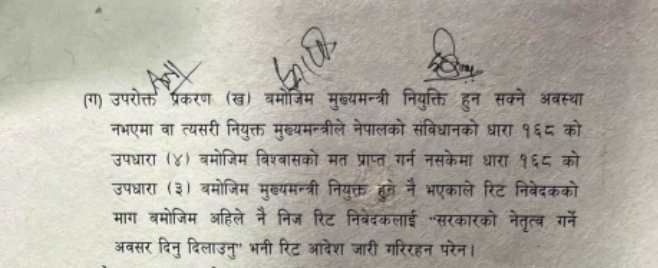 (ग) उपरोक्त प्रकरण (ख) बमोजिम मुख्यमन्त्री नियुक्ति हुन सक्ने अवस्था
नभएमा वा त्यसरी नियुक्त मुख्यमन्त्रीले नेपालको संविधानको धारा १६८ को
उपधारा (४) बमोजिम विश्वासको मत प्राप्त गर्न नसकेमा धारा १६८ को
उपधारा (३) बमोजिम मुख्यमन्त्री नियुक्त हुने नै भएकाले रिट निवेदकको
माग बमोजिम अहिले नै निज रिट निवेदकलाई "सरकारको नेतृत्व गर्ने
अवसर दिनु दिलाउनु" भनी रिट आदेश जारी गरिरहन परेन।